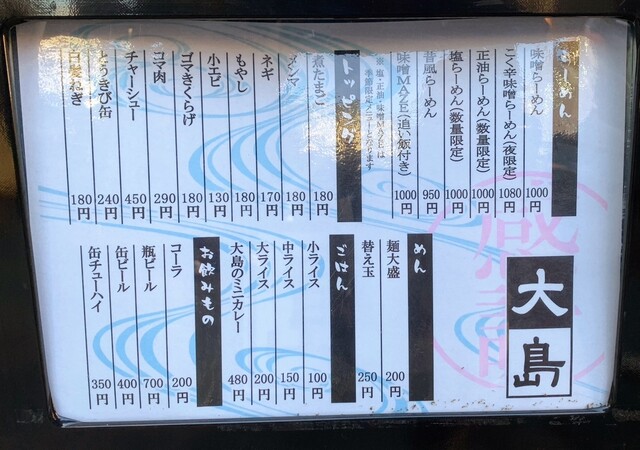 らーめん
味噌らーめん 1000円
こく辛味噌らーめん(夜限定) 1080円
正油らーめん(数量限定) 1000円
塩らーめん(数量限定) 1000円
昔風らーめん 950円
味噌MAZE(追い飯付き) 1000円
※塩・正油・味噌MAZEは
季節限定メニューとなります
トッピング
煮たまご 180円
メンマ 180円
ネギ 170円
もやし 180円
小エビ 130円
ゴマきくらげ 180円
コマ肉 290円
チャーシュー 450円
とうきび缶 240円
白髪ねぎ 180円
大島
めん
麺大盛 200円
替え玉 250円
ごはん
小ライス 100円
中ライス 150円
大ライス 200円
大島のミニカレー 480円
お飲みもの
コーラ 200円
瓶ビール 700円
缶ビール 400円
缶チューハイ 350円